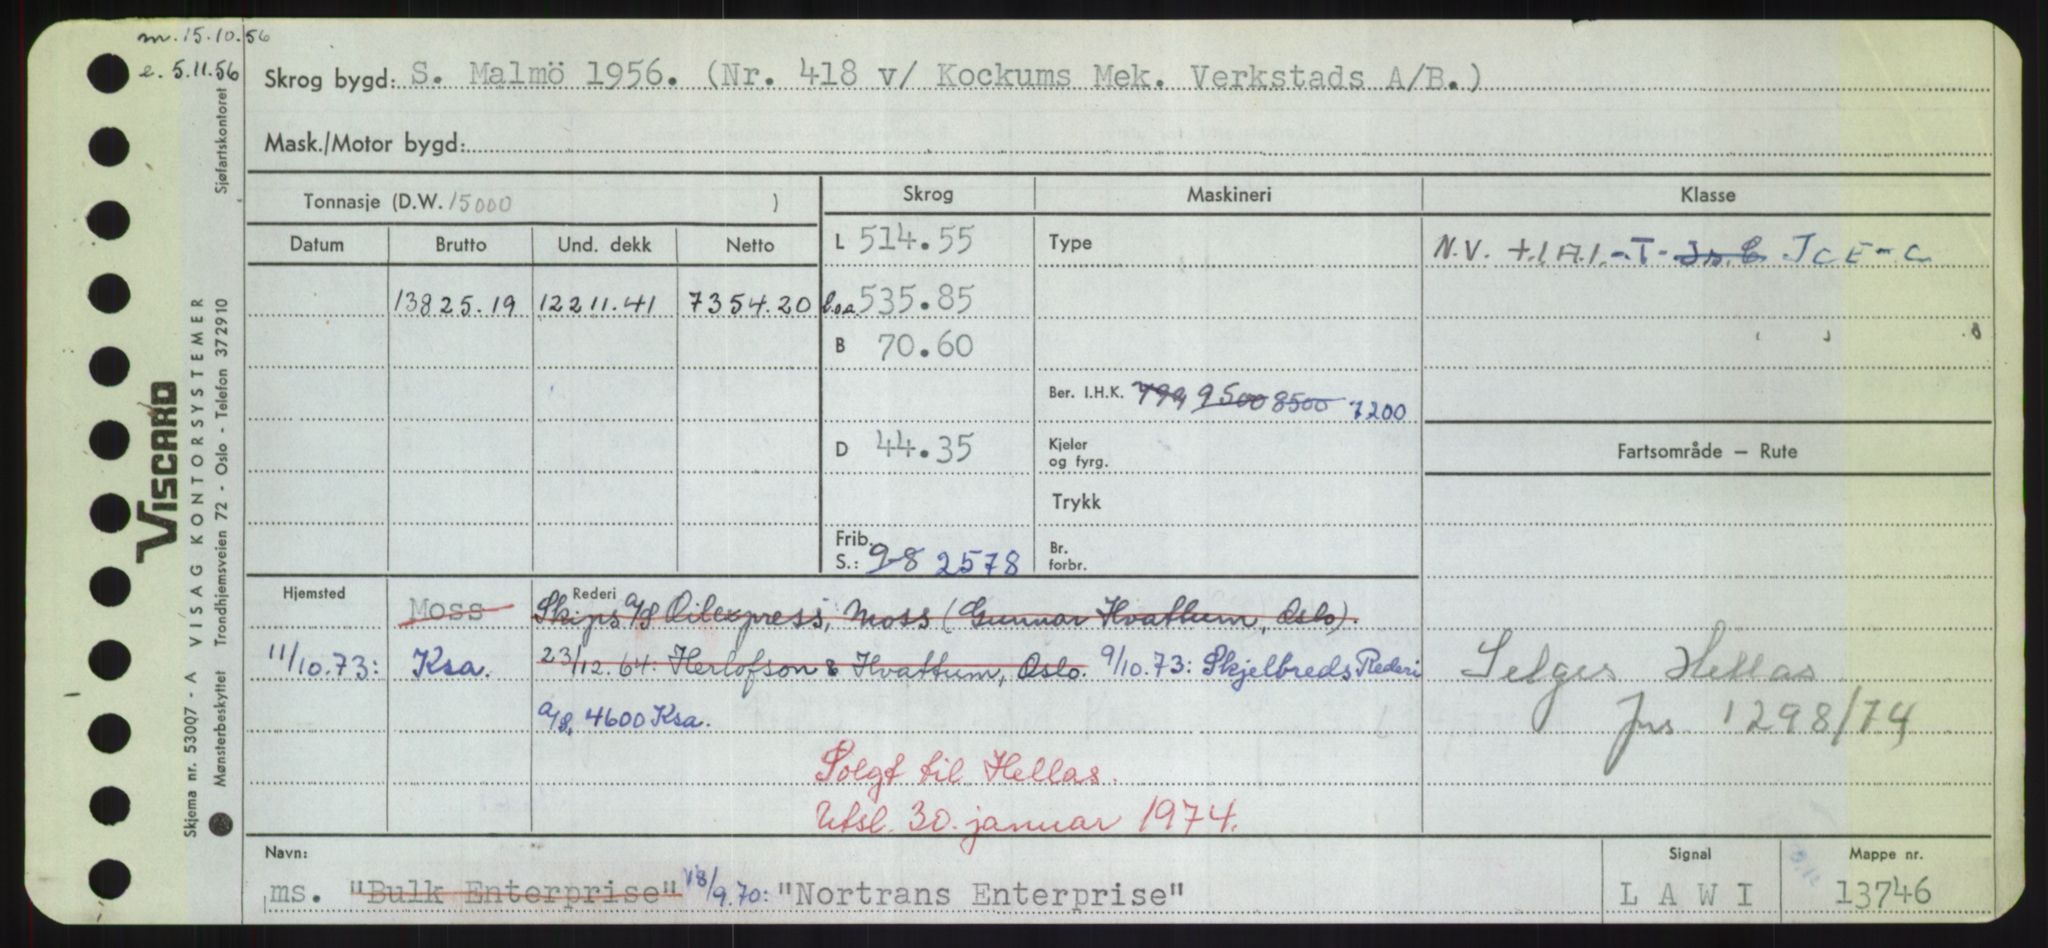 m. 15.10.56
e. 5.11.56
Skrog bygd: S. Malmö 1956. (Nr. 418 v/ Kockums Mek. Verkstads A/B.)
Mask./Motor bygd:
Tonnasje (D.W. 15000 )
Skrog
Maskineri
Klasse
Datum Brutto Und. dekk Netto
L 514.55
Type
N.V. +.1.A.1.-T- Is. C ICE-C
13825.19 12211.41 7354.20
l.o.a. 535.85
B 70.60
Ber. I.H.K. 9500 8500 7200
D 44.35
Kjeler
og fyrg.
Fartsområde — Rute
Trykk
Frib.
S.: 9-8 2578
Br.
forbr.
Hjemsted
Rederi
Moss Skips A/S Oilexpress, Moss (Gunnar Hvattum, Oslo).
11/10.73: Ksa. 23/12.64: Herlofson & Hvattum, Oslo. 9/10.73: Skjelbreds Rederi
A/S, 4600 Ksa.
Selges Hellas
jns. 1298/74
Solgt til Hellas.
Utsl. 30. januar 1974.
Navn:
ms. "Bulk Enterprise" 18/9.70: "Nortrans Enterprise"
Signal
L A W I
Mappe nr.
13746
VISCARD
Skjema nr. 53007 - A VISAG KONTORSYSTEMER
Mønsterbeskyttet Trondhjemsveien 72 - Oslo - Telefon 372910 Sjøfartskontoret